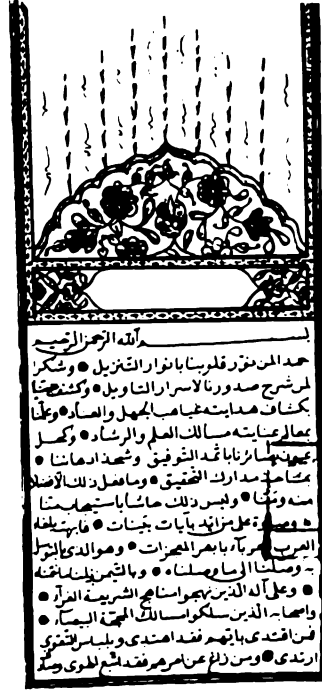 بسم الله الرحمن الرحيم
حمدا لمن نور قلوبنا بانوار التنزيل وشكرا
لمن شرح صدورنا لاسرار التاويل وكشف عنا
بكشاف هدايته غياهب الجهل والعناد وعلنا
بمعالم عنايته مسالك العلم والرشاد وكحل
عيون بصائرنا باثمد التوفيق وشحذ اذهاننا
بمشاحذ مدارك التحقيق وما فعل ذلك الا فضلا
منه ومنا وليس ذلك حاشا باستيجاب منا
وصلوة على من ايد بايات بينات
العرب بآء بابهر المعجزات وهو الذي
به وصلنا الى ما وصلناه وبالتيمن
وعلى آله الذين نهجوا مناهج الشريعة الغرآء
واصحابه الذين سلكوا مسالك المحجة البيضآء
فمن اقتدى بايهم فقد اهتدى وبلباس التقوى
ارتدى ومن زاغ عن امرهم فقد اتبع الهوى